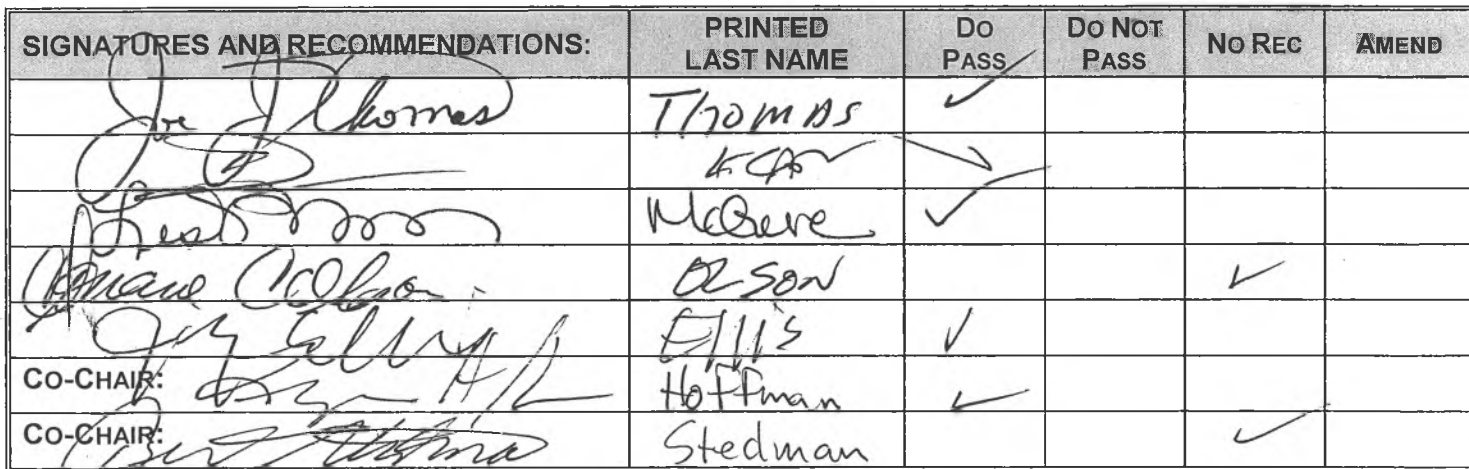 SIGNATURES AND RECOMMENDATIONS: PRINTED LAST NAME DO PASS DO NOT PASS NO REC AMEND
Joe J Thomas Thomas ✓
McGuire ✓
Olson OLSON ✓
Ellis ✓
CO-CHAIR: Hoffman ✓
CO-CHAIR: Bert Stedman Stedman ✓